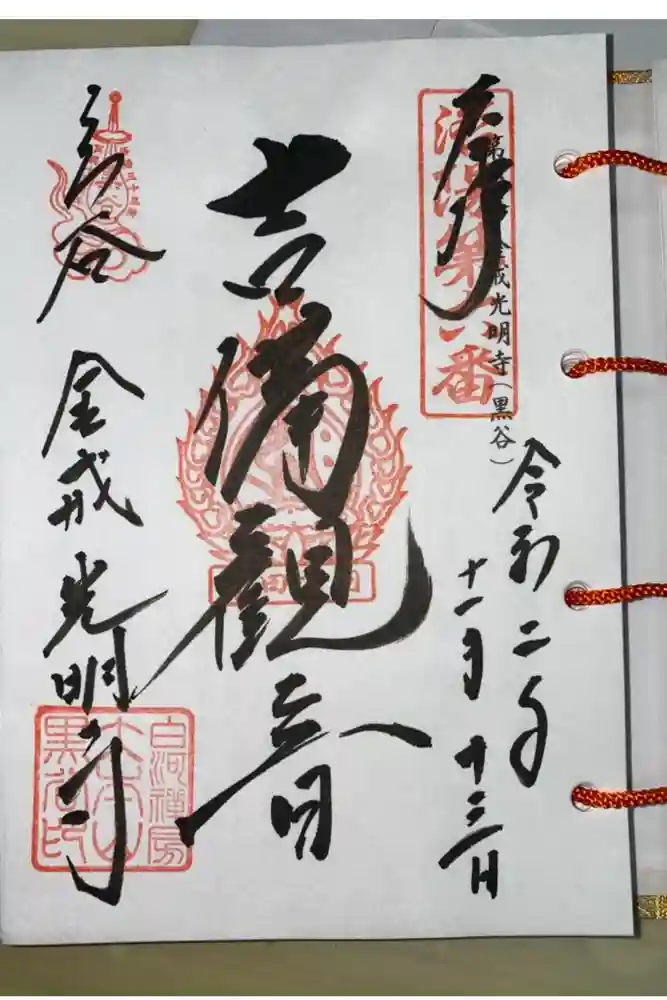 奉拝
洛陽第六番
金戒光明寺（黒谷）
令和二年
十一月十三日
吉備觀音
くろ谷
金戒光明寺
白河禪房
大本山
黒谷印